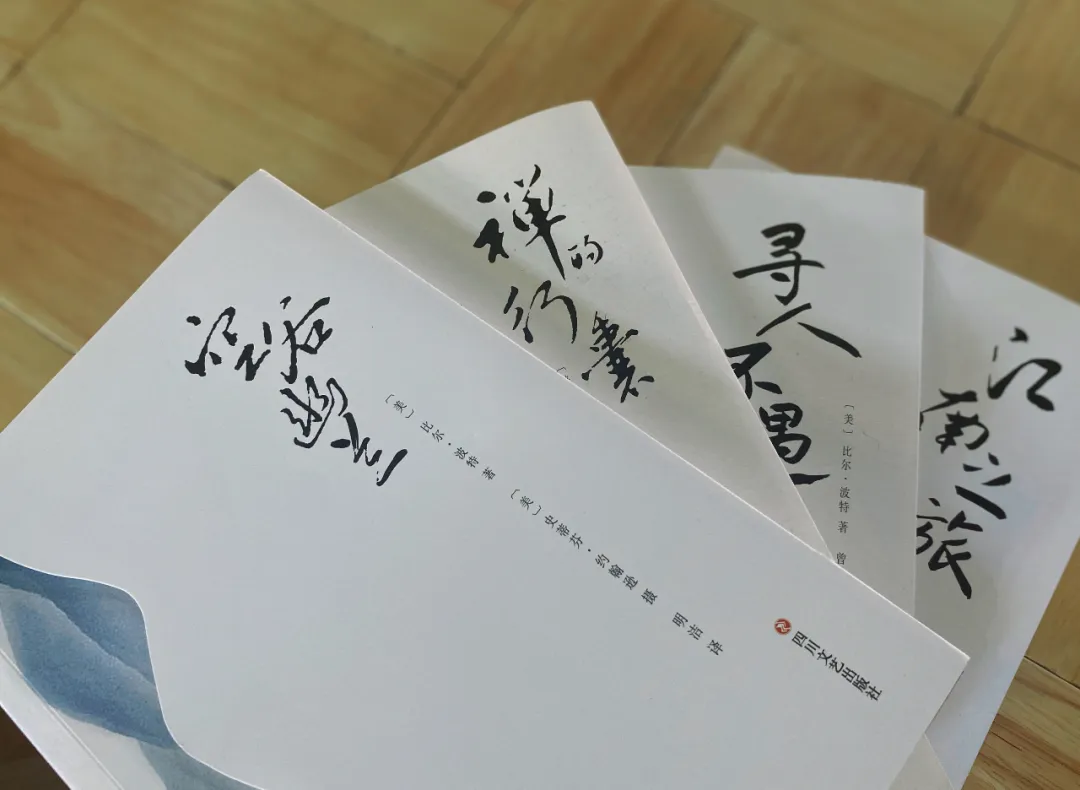 空谷幽兰
〔美〕比尔·波特 著 〔美〕史蒂芬·约翰逊 摄 明洁 译
四川文艺出版社
禅的
行囊
寻人
不遇
〔美〕比尔·波特 著 曾
江
南之
旅